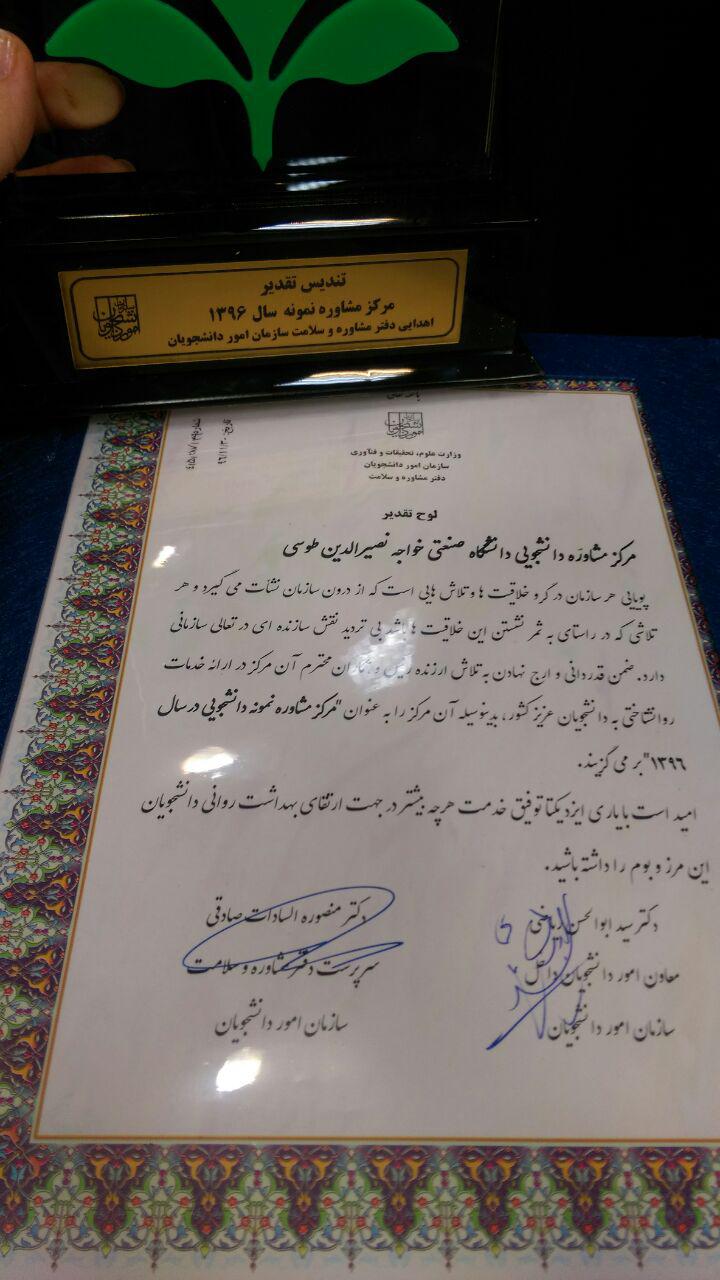 تندیس تقدیر
مرکز مشاوره نمونه سال ۱۳۹۶
اهدایی دفتر مشاوره و سلامت سازمان امور دانشجویان
وزارت علوم، تحقیقات و فنآوری
سازمان امور دانشجویان
دفتر مشاوره و سلامت
لوح تقدیر
مرکز مشاوره دانشجویی دانشگاه صنعتی خواجه نصیرالدین طوسی
پویایی هر سازمان در گرو خلاقیت ها و تلاش هایی است که از درون سازمان نشأت می گیرد و هر
تلاشی که در راستای به ثمر نشستن این خلاقیت ها باشد بی تردید نقش سازنده ای در تعالی سازمانی
دارد. ضمن قدردانی و ارج نهادن به تلاش ارزنده رئیس و همکاران محترم آن مرکز در ارائه خدمات
روانشناختی به دانشجویان عزیز کشور، بدینوسیله آن مرکز را به عنوان "مرکز مشاوره نمونه دانشجویی در سال
۱۳۹۶" بر می گزیند.
امید است با یاری ایزد یکتا توفیق خدمت هرچه بیشتر در جهت ارتقای بهداشت روانی دانشجویان
این مرز و بوم را داشته باشید.
دکتر سید ابوالحسن
معاون امور دانشجویان داخل
سازمان امور دانشجویان
دکتر منصوره السادات صادقی
سرپرست دفتر مشاوره و سلامت
سازمان امور دانشجویان